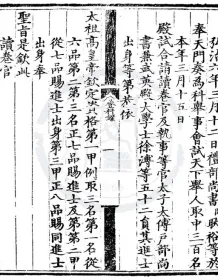 奉天門奏為科舉事會試天下舉人取中三百名
本年三月十五日
殿試合請讀卷官及執事等官太子太傅戶部尚
書兼武英殿大學士徐溥等五十二員其進士
出身等第恭依
太祖高皇帝欽定資格第一甲例取三名第一名從
六品第二第三名正七品賜進士及第第二甲
從七品賜進士出身第三甲正八品賜同進士
出身奉
聖旨是欽此
讀卷官